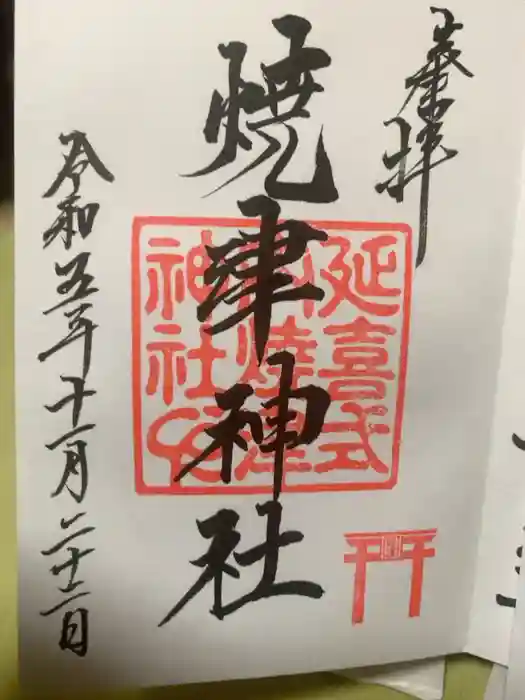 奉拝
焼津神社
延喜式
内焼津
神社印
令和五年十一月二十二日